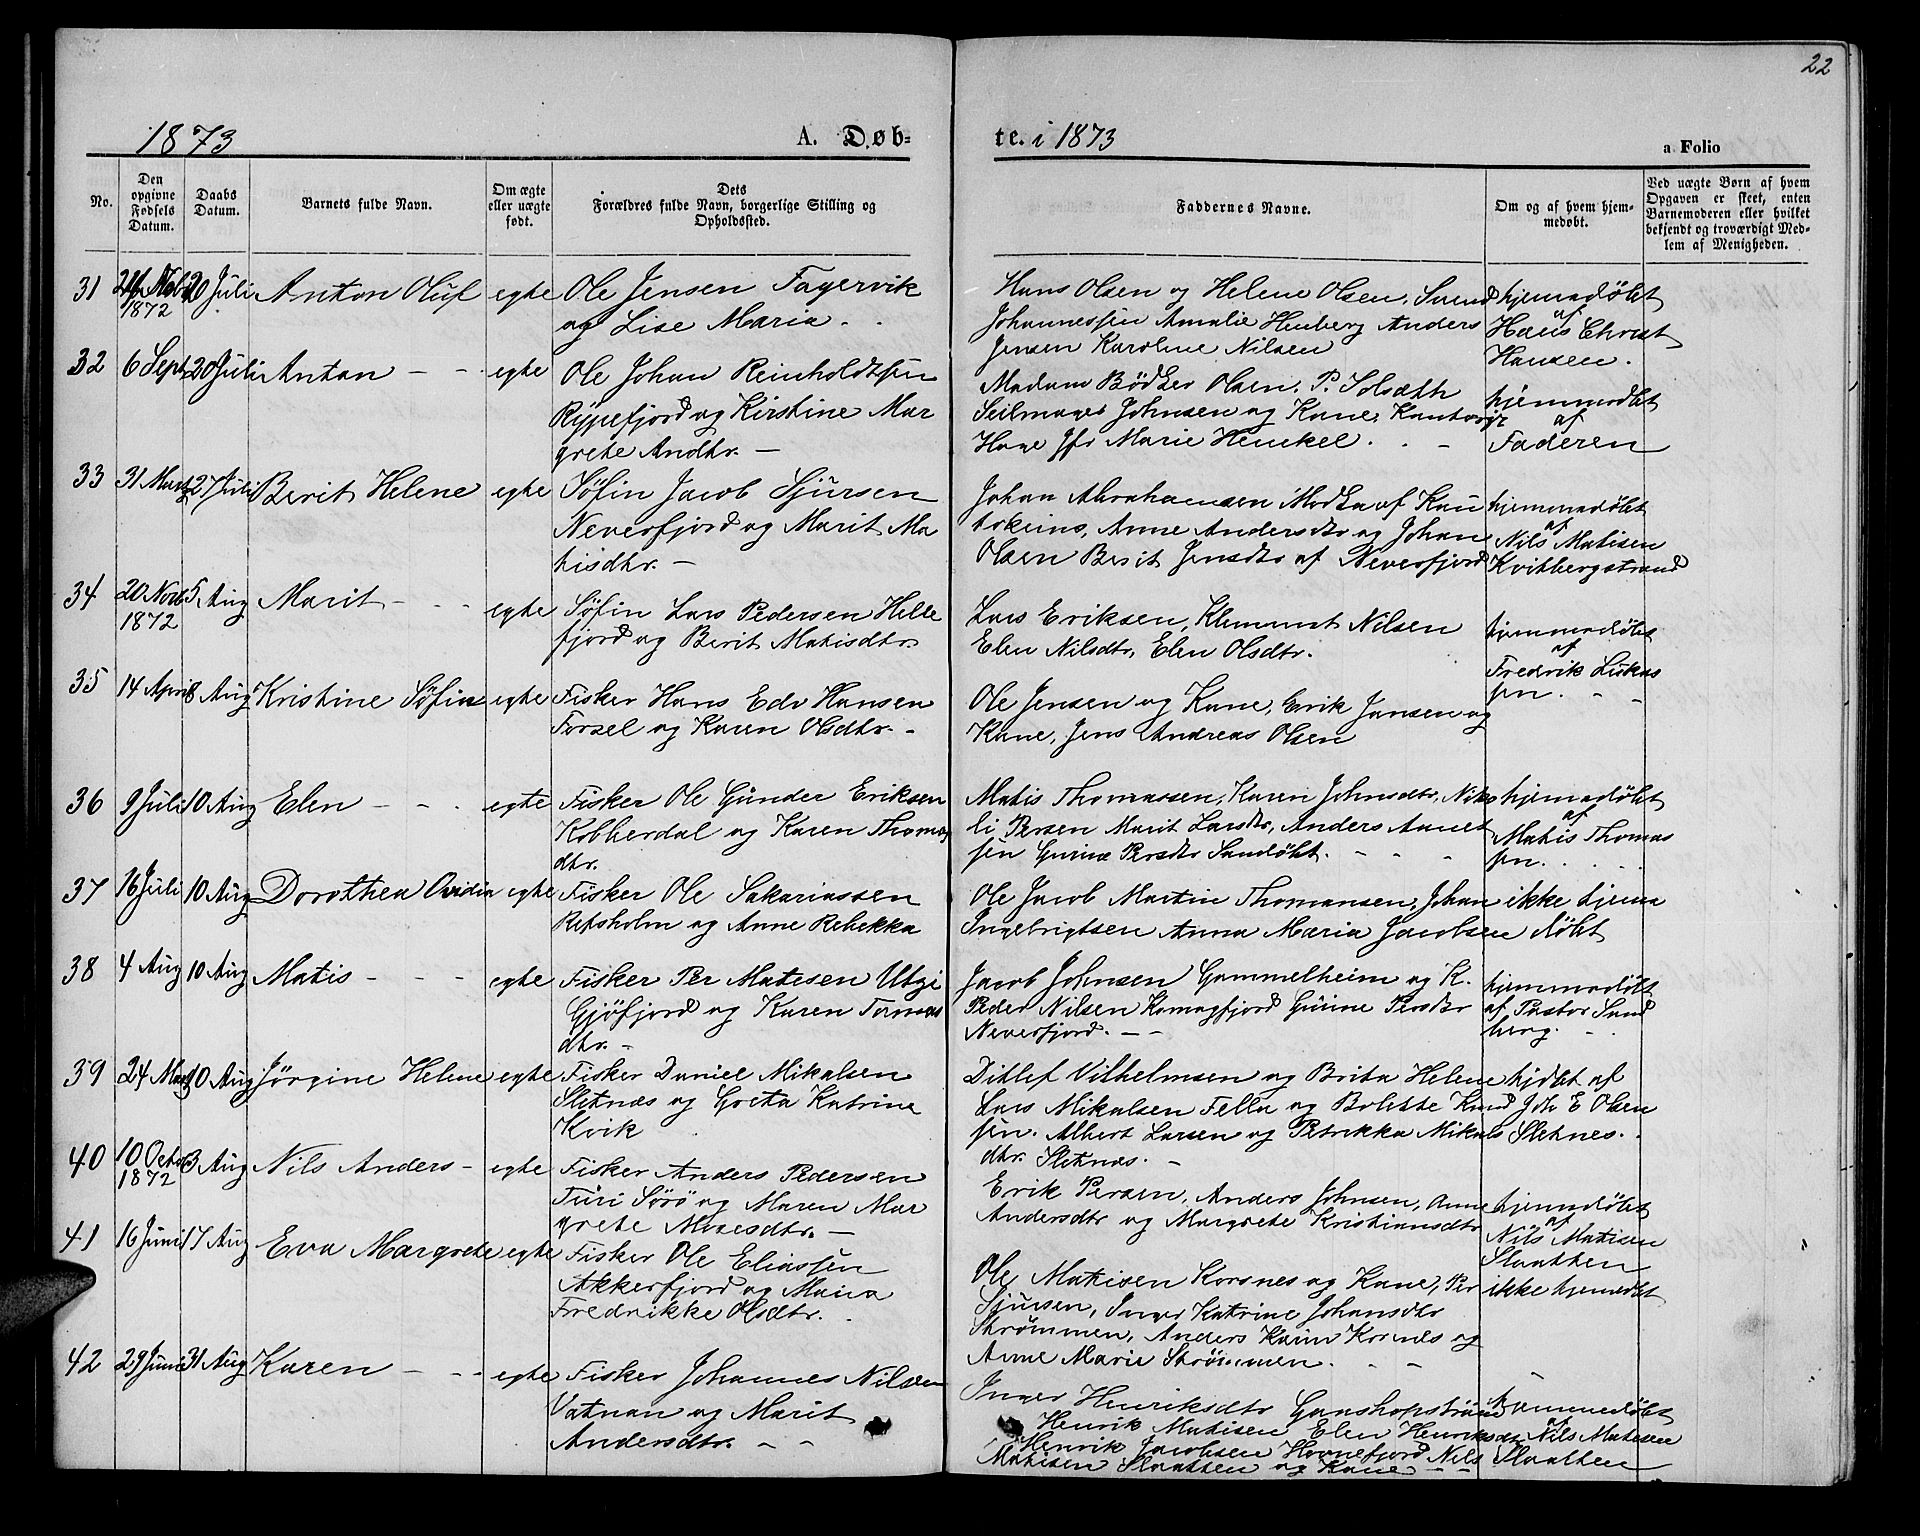 22
1873
A. Døb-
te. i 1873
a Folio
No.
Den opgivne Fødsels Datum.
Daabs Datum.
Barnets fulde Navn.
Om ægte eller uægte født.
Dets Forældres fulde Navn, borgerlige Stilling og Opholdssted.
Faddernes Navne.
Om og af hvem hjemmedøbt.
Ved uægte Børn af hvem
Opgaven er skeet, enten
Barnemoderen eller hvilket
bekjendt og troværdigt Med-
lem af Menigheden.
31 Novb 1872 20 Juli Anton Oluf egte Ole Jensen Fagervik
og Lise Maria.
Hans Olsen og Helene Olsen, Svend
Johannessen Amalie Anders
Jensen Karoline Nilsen
hjemmedøbt
af
Hans Christ
Hansen.
32 6 Sept 20 Juli Anton egte Ole Johan Reinholdtsen
Rypefjord og Kirstine Mar
grete Andtr.
Madam Bödker Olsen. P. Solsæth
Seilmager Johnsen og Kane,
Hane Jfr Marie Henckel.
hjemmedøbt
af
Faderen
33 31 Marts 27 Juli Berit Helene egte Søfin Jacob Sjursen
Neverfjord og Marit Ma
tisdtr.
Johan Abrahamsen Modka af Kau
tokeino, Anne Andersdtr og Johan
Olsen Berit Jensdtr af Neverfjord
hjemmedøbt
af
Nils Matisen
Kvitbergstrand
34 20 Novb 1872 5 Aug Marit egte Søfin Lars Pedersen Helle
fjord og Berit Matisdtr.
Lars Eriksen, Klemmet Nilsen
Elen Nilsdtr, Elen Olsdtr.
hjemmedøbt
af
Fredrik Lukas
sen.
35 14 April 8 Aug Kristine Søfin egte Fisker Hans Edv Hansen
Forsel og Karen Olsdtr.
Ole Jensen og Kane, Erik Jansen og
Kane, Jens Andreas Olsen
36 9 Juli 10 Aug Elen egte Fisker Ole Gunder Eriksen
Kobberdal og Karen Thomas
dtr.
Matis Thomassen, Karen Johnsdtr, Niko
li Persen Marit Larsdtr, Anders Aanet
sen Gurine Persdtr Sandøbt.
hjemmedøbt
af
Matis Thomas
sen.
37 16 Juli 10 Aug Dorothea Ovidia egte Fisker Ole Sakariassen
Repsholm og Anne Rebekka
Ole Jacob Martin Thomassen, Johan
Ingebrigtsen Anna Maria Jacobsen
ikke hjemme
døbt
38 4 Aug 10 Aug Matis egte Fisker Per Matisen
Gjøfjord og Karen Tomas
dtr.
Jacob Johnsen Gammelheim og K.
Peder Nilsen Komagfjord Gurine Persdtr
Neverfjord.
hjemmedøbt
af Pastor Sund
berg.
39 24 Marts 10 Aug Jörgine Helene egte Fisker Daniel Mikalsen
Sletnæs og Greta Katrine
Kvik
Ditlef Vilhelmsen og Brita Helene
Lars Mikalsen Fella og Bolette Knud
sen. Albert Larsen og Petrikka Mikals
dtr. Sletnæs.
hjdbt af
Joh E Olsen
Sletnes.
40 10 Octo 1872 13 Aug Nils Anders egte Fisker Anders Pedersen
Turi Sørø og Maren Mar
grete Mosesdtr.
Erik Persen, Anders Johnsen, Anne
Andersdtr og Margrete Kristiansdtr
hjemmedøbt
af
Nils Matisen
Slaatten
41 16 Juni 17 Aug Eva Margrete egte Fisker Ole Eliassen
Akkerfjord og Maria
Fredrikke Olsdtr.
Ole Matisen Korsnes og Kane, Per
Sjursen, Inger Katrine Johansdtr
Strømmen, Anders Korsnes og
Anne Marie Strømmen.
ikke hjemdbt
42 29 Juni 31 Aug Karen egte Fisker Johannes Nilsen
Vatnan og Marit
Andersdtr.
Inger Henriksdtr Ganshopstrand
Henrik Matisen Elen Henriksdt
Henrik Jacobsen Nils
Matisen Slaatten og Kane
hjemmedøbt
af
Nils Matisen
Slaatten